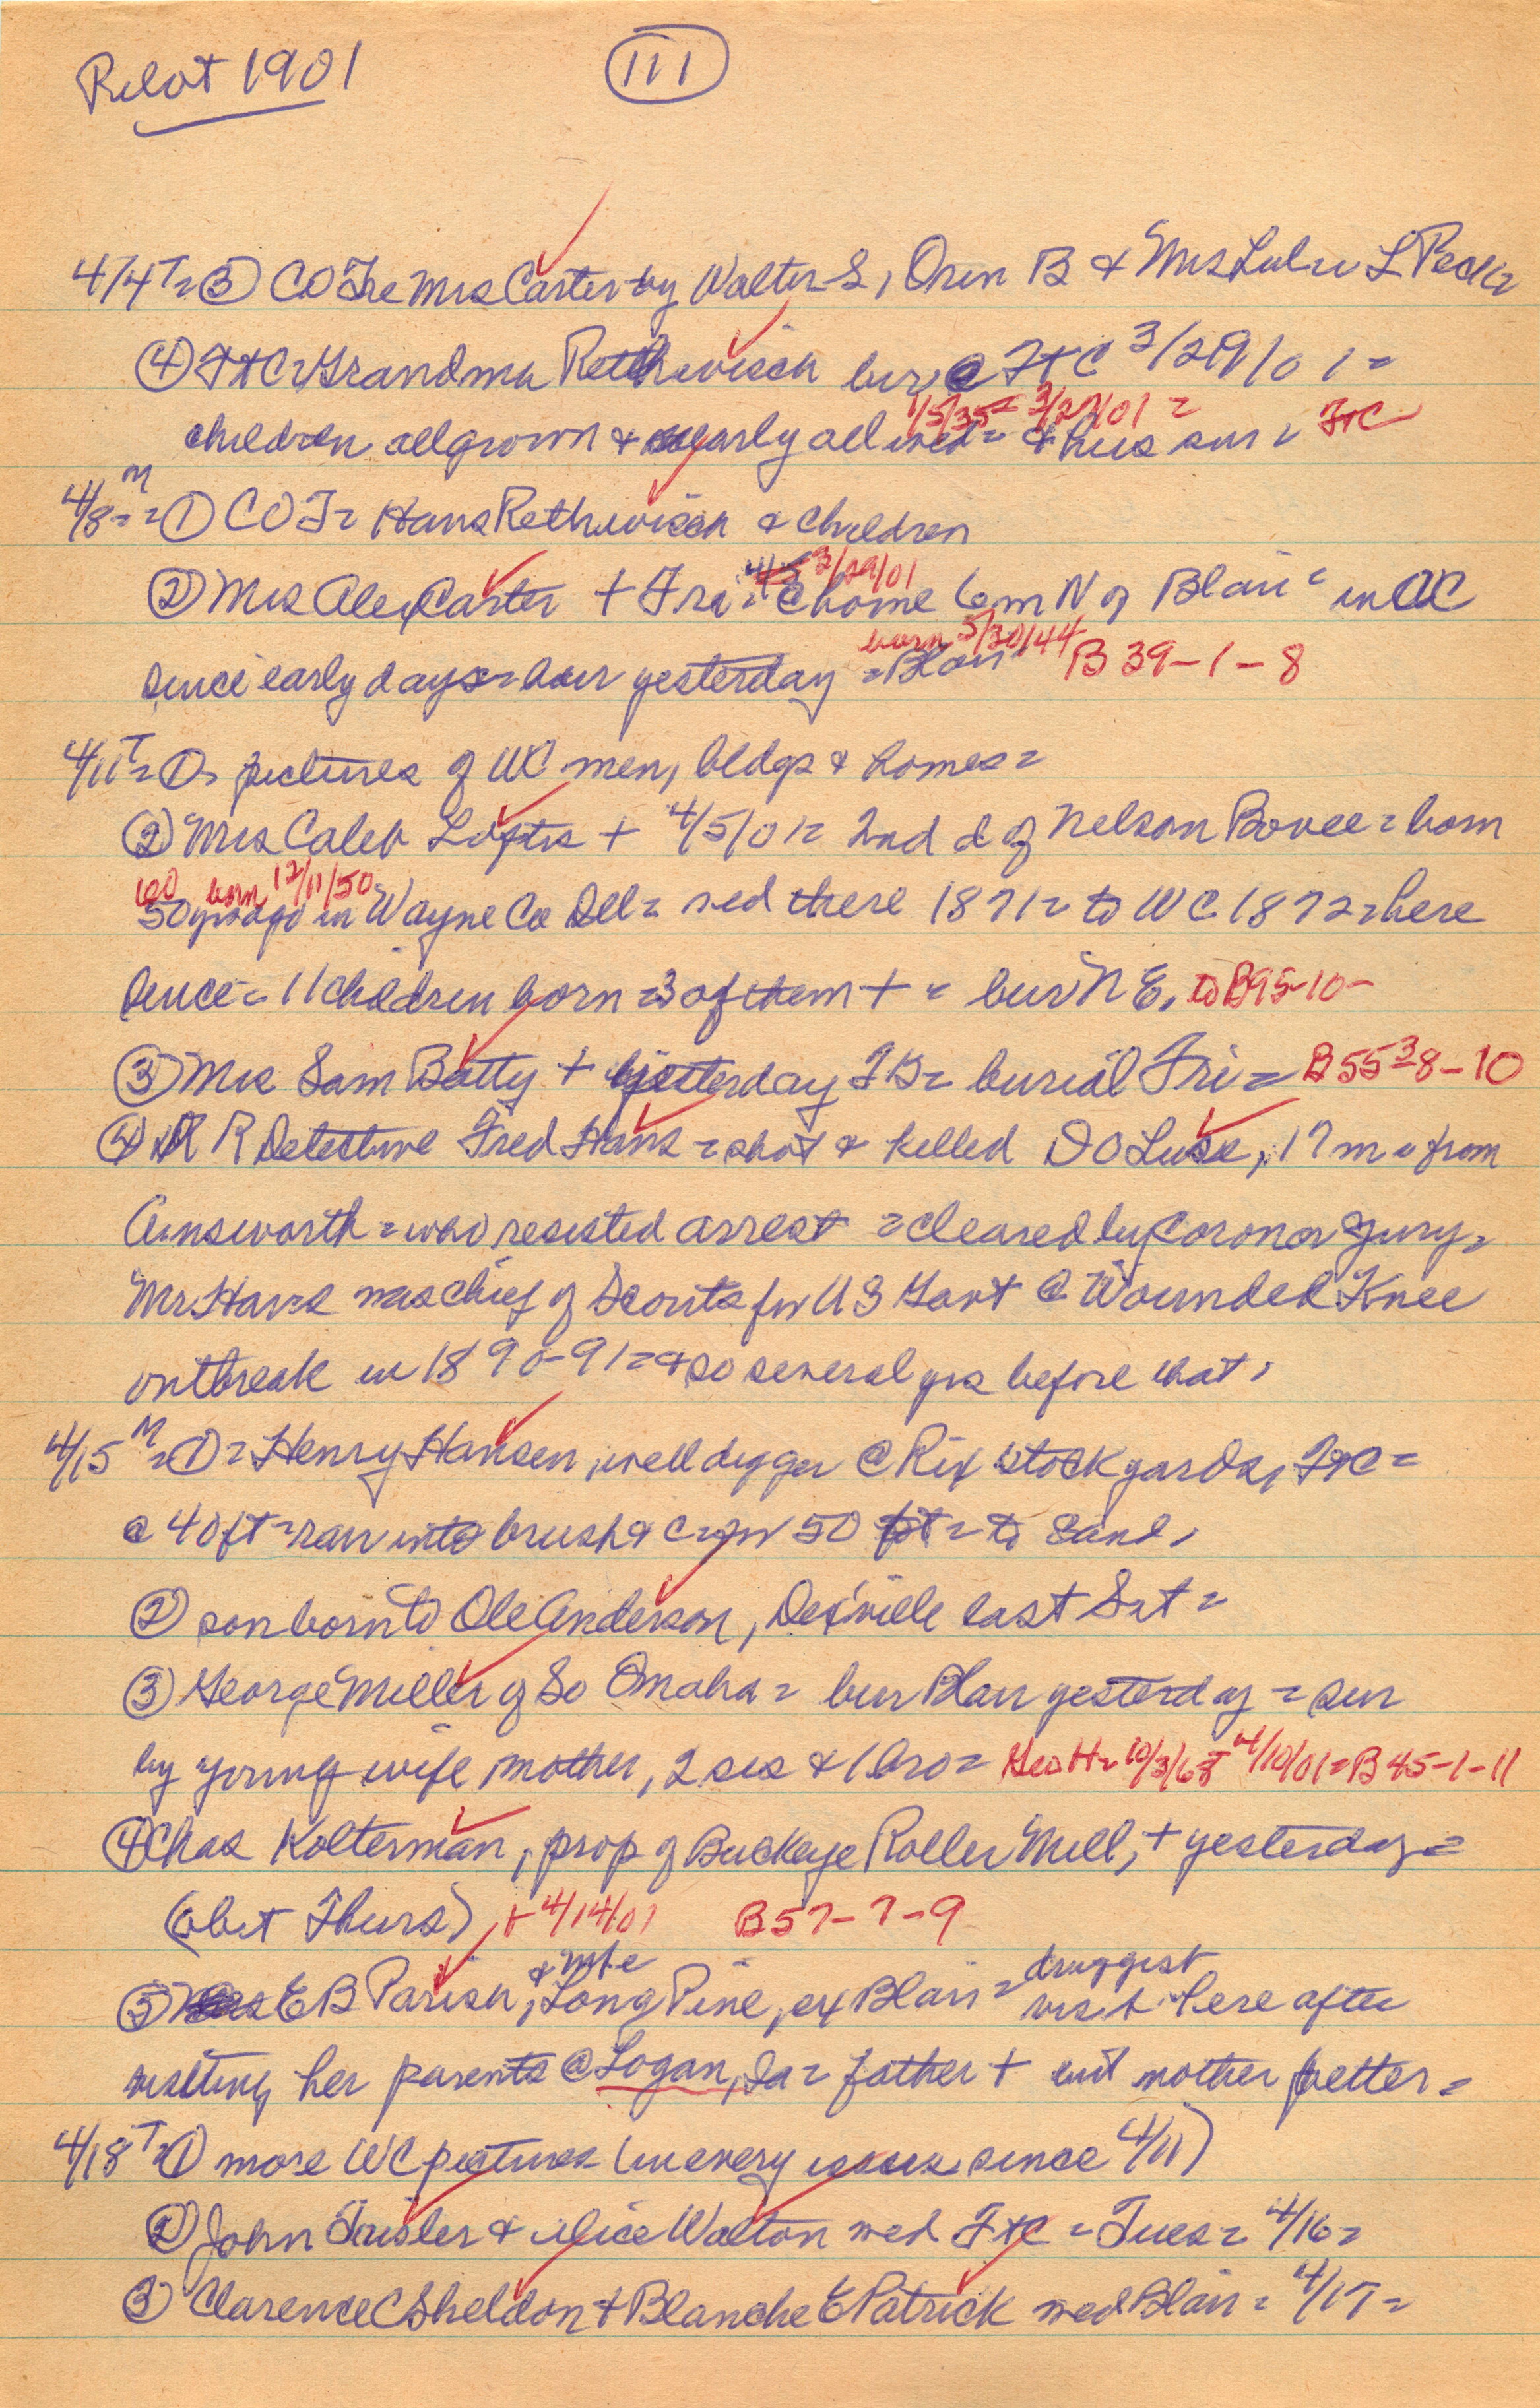 Pilot 1901 111
4/4 T = ③ COT re Mrs Carter by Walter S, Oren B & Mrs Lulu L
④ FtC = Grandma Rethwisch bur @ FtC 3/29/01 =
1/5/35 = 3/27/01 =
children all grown & nearly all wed = & hus sur = FtC
4/8 M = ① COT = Hans Rethwisch & children
3/29/01
② Mrs Alex Carter + Fri = @ home 6 m N of Blair = in WC
born 5/30/44
since early days = bur yesterday = Blair B 39-1-8
4/11 T = ① = pictures of WC men, bldgs & homes =
② Mrs Caleb Loftis + 4/5/01 = 2nd d of Nelson Bovee = born
born 12/11/50
50 yrs ago in Wayne Co Ill = wed there 1871 = to WC 1872 = here
since = 11 children born = 3 of them + = bur N E, to B95-10-
③ Mrs Sam Batty + yesterday TB = burial Fri = B 55 38-10
④ R R Detective Fred Hans = shot & killed D O Luse, 17 m = from
Ainsworth = who resisted arrest = cleared by Coroner Jury =
Mr Hans was chief of Scouts for U S Govt @ Wounded Knee
outbreak in 1890-91 = & so several yrs before that,
4/15 M = ① = Henry Hansen, well digger @ Rix stock yards, FtC =
@ 40 ft = ran into brush & 50 ft = to sand,
② son born to Ole Anderson, De Soville last Sat =
③ George Miller of So Omaha = bur Blair yesterday = sur
by young wife mother, 2 sis & 1 bro = Geo H = 10/3/68 4/10/01 = B 45-1-11
④ Chas Kolterman, prop of Buckeye Roller Mill, + yesterday =
(obit Thurs), + 4/14/01 B57-7-9
& wife druggist
⑤ E B Parish, Long Pine, ex Blair = visit here after
visiting her parents @ Logan, Ia = father + but mother better =
4/18 T = ① more WC pictures (in every issue since 4/11)
② John Trisler & Alice Walton wed FtC = Tues = 4/16 =
③ Clarence C Sheldon & Blanche E Patrick wed Blair = 4/17 =